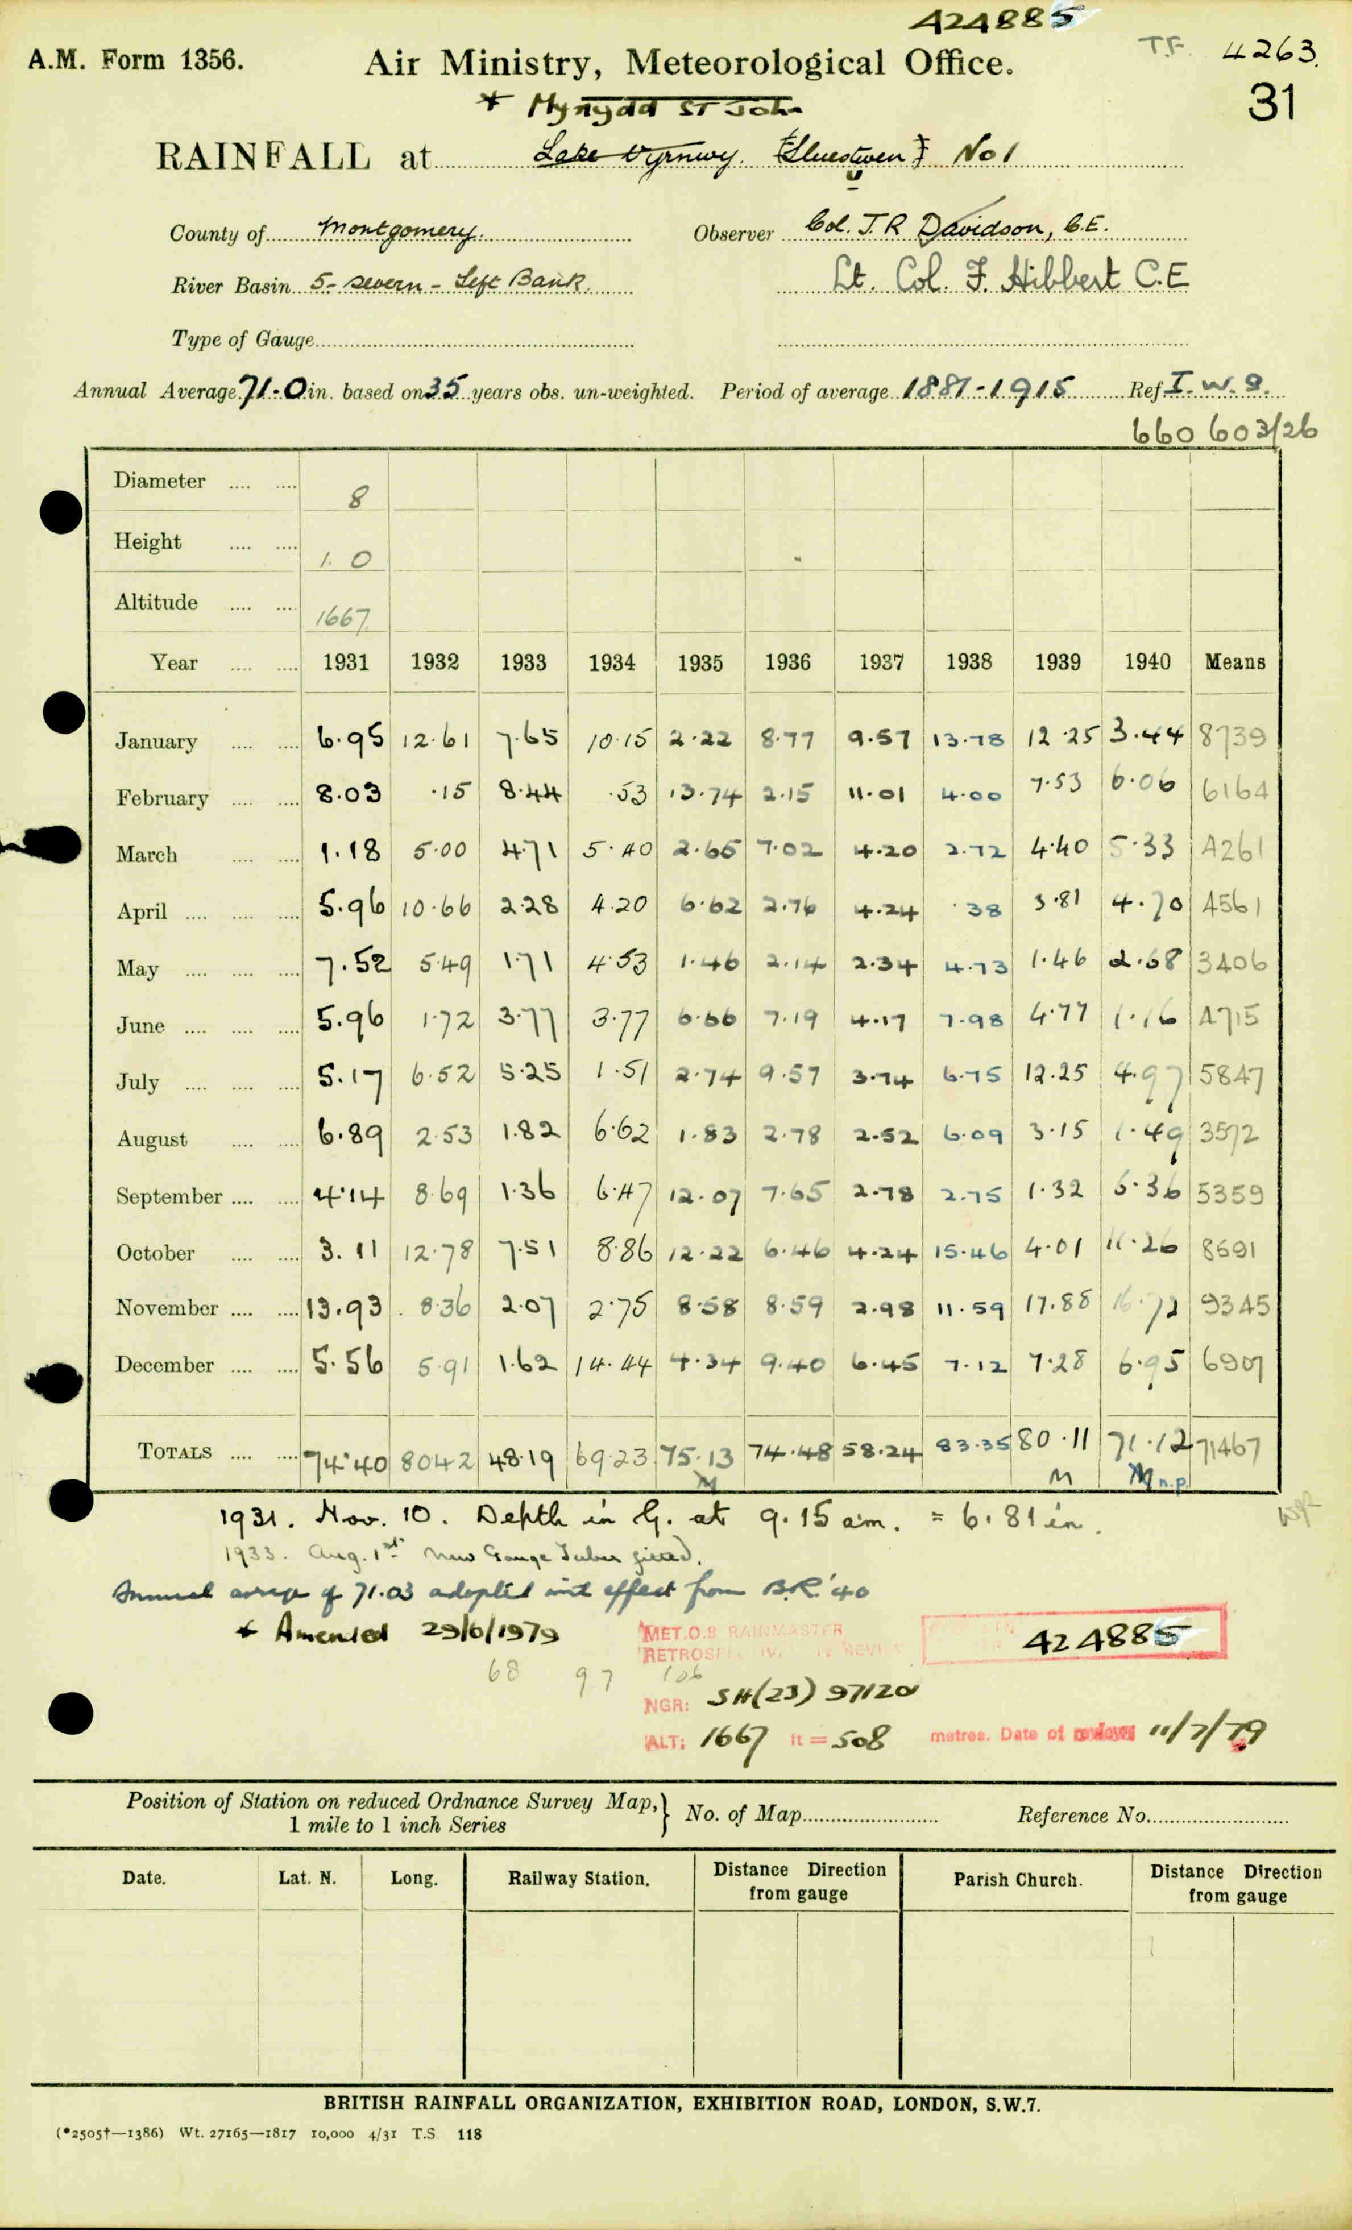 424885
A.M. Form 1356. Air Ministry, Meteorological Office. T.F. 4263.
31
* Mynydd St John
RAINFALL at Lake Vyrnwy. No 1
County of Montgomery. Observer Col. J.R Davidson, C.E.
River Basin 5- Severn - Left Bank. Lt. Col. F. Hibbert C.E
Type of Gauge
Annual Average 71.0 in. based on 35 years obs. un-weighted. Period of average 1881-1915 Ref I.W.S.
660 603/26
Diameter .... .... 8
Height .... .... 1. 0
Altitude .... .... 1667
Year .... .... 1931 1932 1933 1934 1935 1936 1937 1938 1939 1940 Means
January .... .... 6.95 12.61 7.65 10.15 2.22 8.77 9.57 13.78 12.25 3.44 8739
February .... .... 8.03 .15 8.44 .53 13.74 2.15 11.01 4.00 7.53 6.06 6164
March .... .... 1.18 5.00 4.71 5.40 2.65 7.02 4.20 2.72 4.40 5.33 4261
April .... .... .... 5.96 10.66 2.28 4.20 6.62 2.76 4.24 .38 3.81 4.70 4561
May .... .... .... 7.52 5.49 1.71 4.53 1.46 2.14 2.34 4.73 1.46 2.68 3406
June .... .... .... 5.96 1.72 3.77 3.77 6.66 7.19 4.17 7.98 4.77 1.16 4715
July .... .... .... 5.17 6.52 5.25 1.51 2.74 9.57 3.74 6.75 12.25 4.97 5847
August .... .... 6.89 2.53 1.82 6.62 1.83 2.78 2.52 6.09 3.15 1.49 3572
September .... .... 4.14 8.69 1.36 6.47 12.07 7.65 2.78 2.75 1.32 6.36 5359
October .... .... 3.11 12.78 7.51 8.86 12.22 6.46 4.24 15.46 4.01 11.26 8591
November .... .... 13.93 8.36 2.07 2.75 8.58 8.59 2.98 11.59 17.88 16.72 9345
December .... .... 5.56 5.91 1.62 14.44 4.34 9.40 6.45 7.12 7.28 6.95 6907
TOTALS .... .... 74.40 80.42 48.19 69.23 75.13 74.48 58.24 83.35 80.11 71.12 71467
M M M n.p.
1931. Nov. 10. Depth in G. at 9.15 am. = 6.81 in.
1933. Aug. 1st New Gauge Tube fitted.
Annual average of 71.03 adopted with effect from B.R. '40
* Amended 29/6/1979 MET.O.8 RAINMASTER 424885
68 97 106
NGR: SH(23) 97120
ALT: 1667 ft = 508 metres. Date of review 11/7/79
Position of Station on reduced Ordnance Survey Map, } No. of Map Reference No.
1 mile to 1 inch Series
Date. Lat. N. Long. Railway Station. Distance Direction from gauge Parish Church. Distance Direction from gauge
BRITISH RAINFALL ORGANIZATION, EXHIBITION ROAD, LONDON, S.W.7.
(*2505†—1386) Wt. 27165—1817 10,000 4/31 T.S. 118